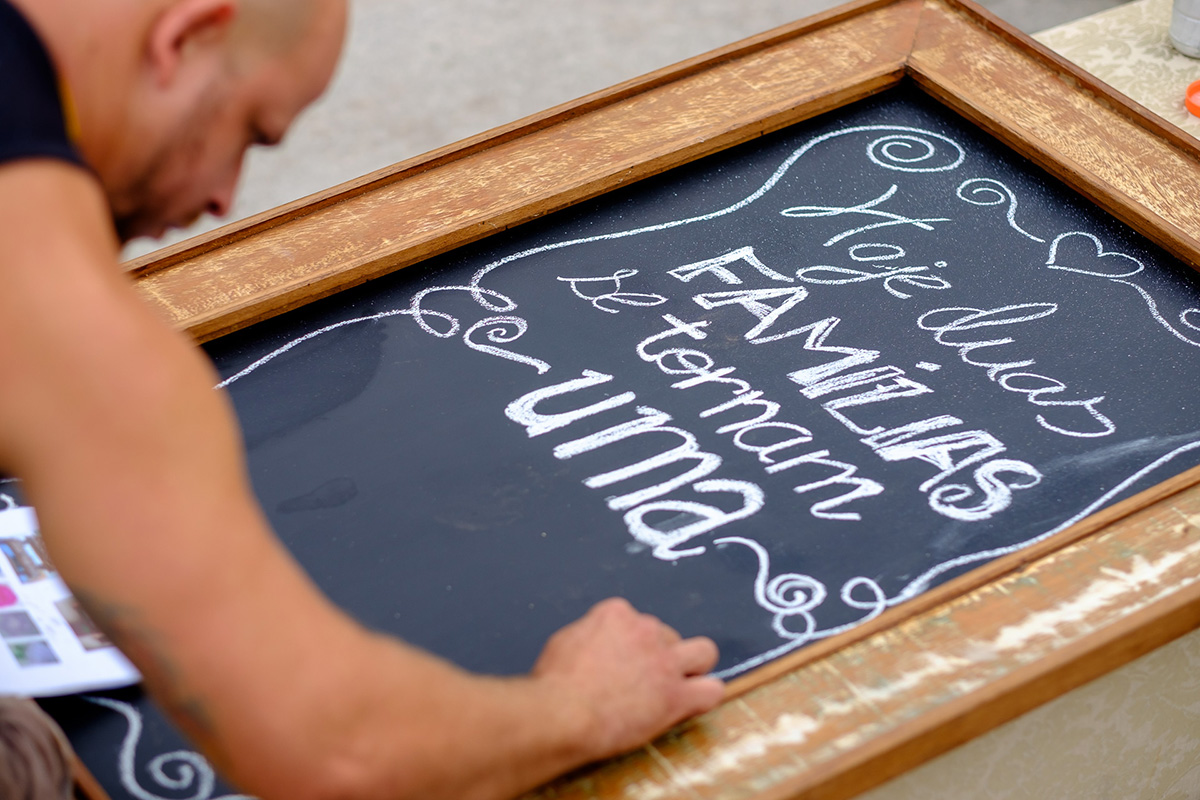 Hoje duas
FAMILIAS
se tornam
uma